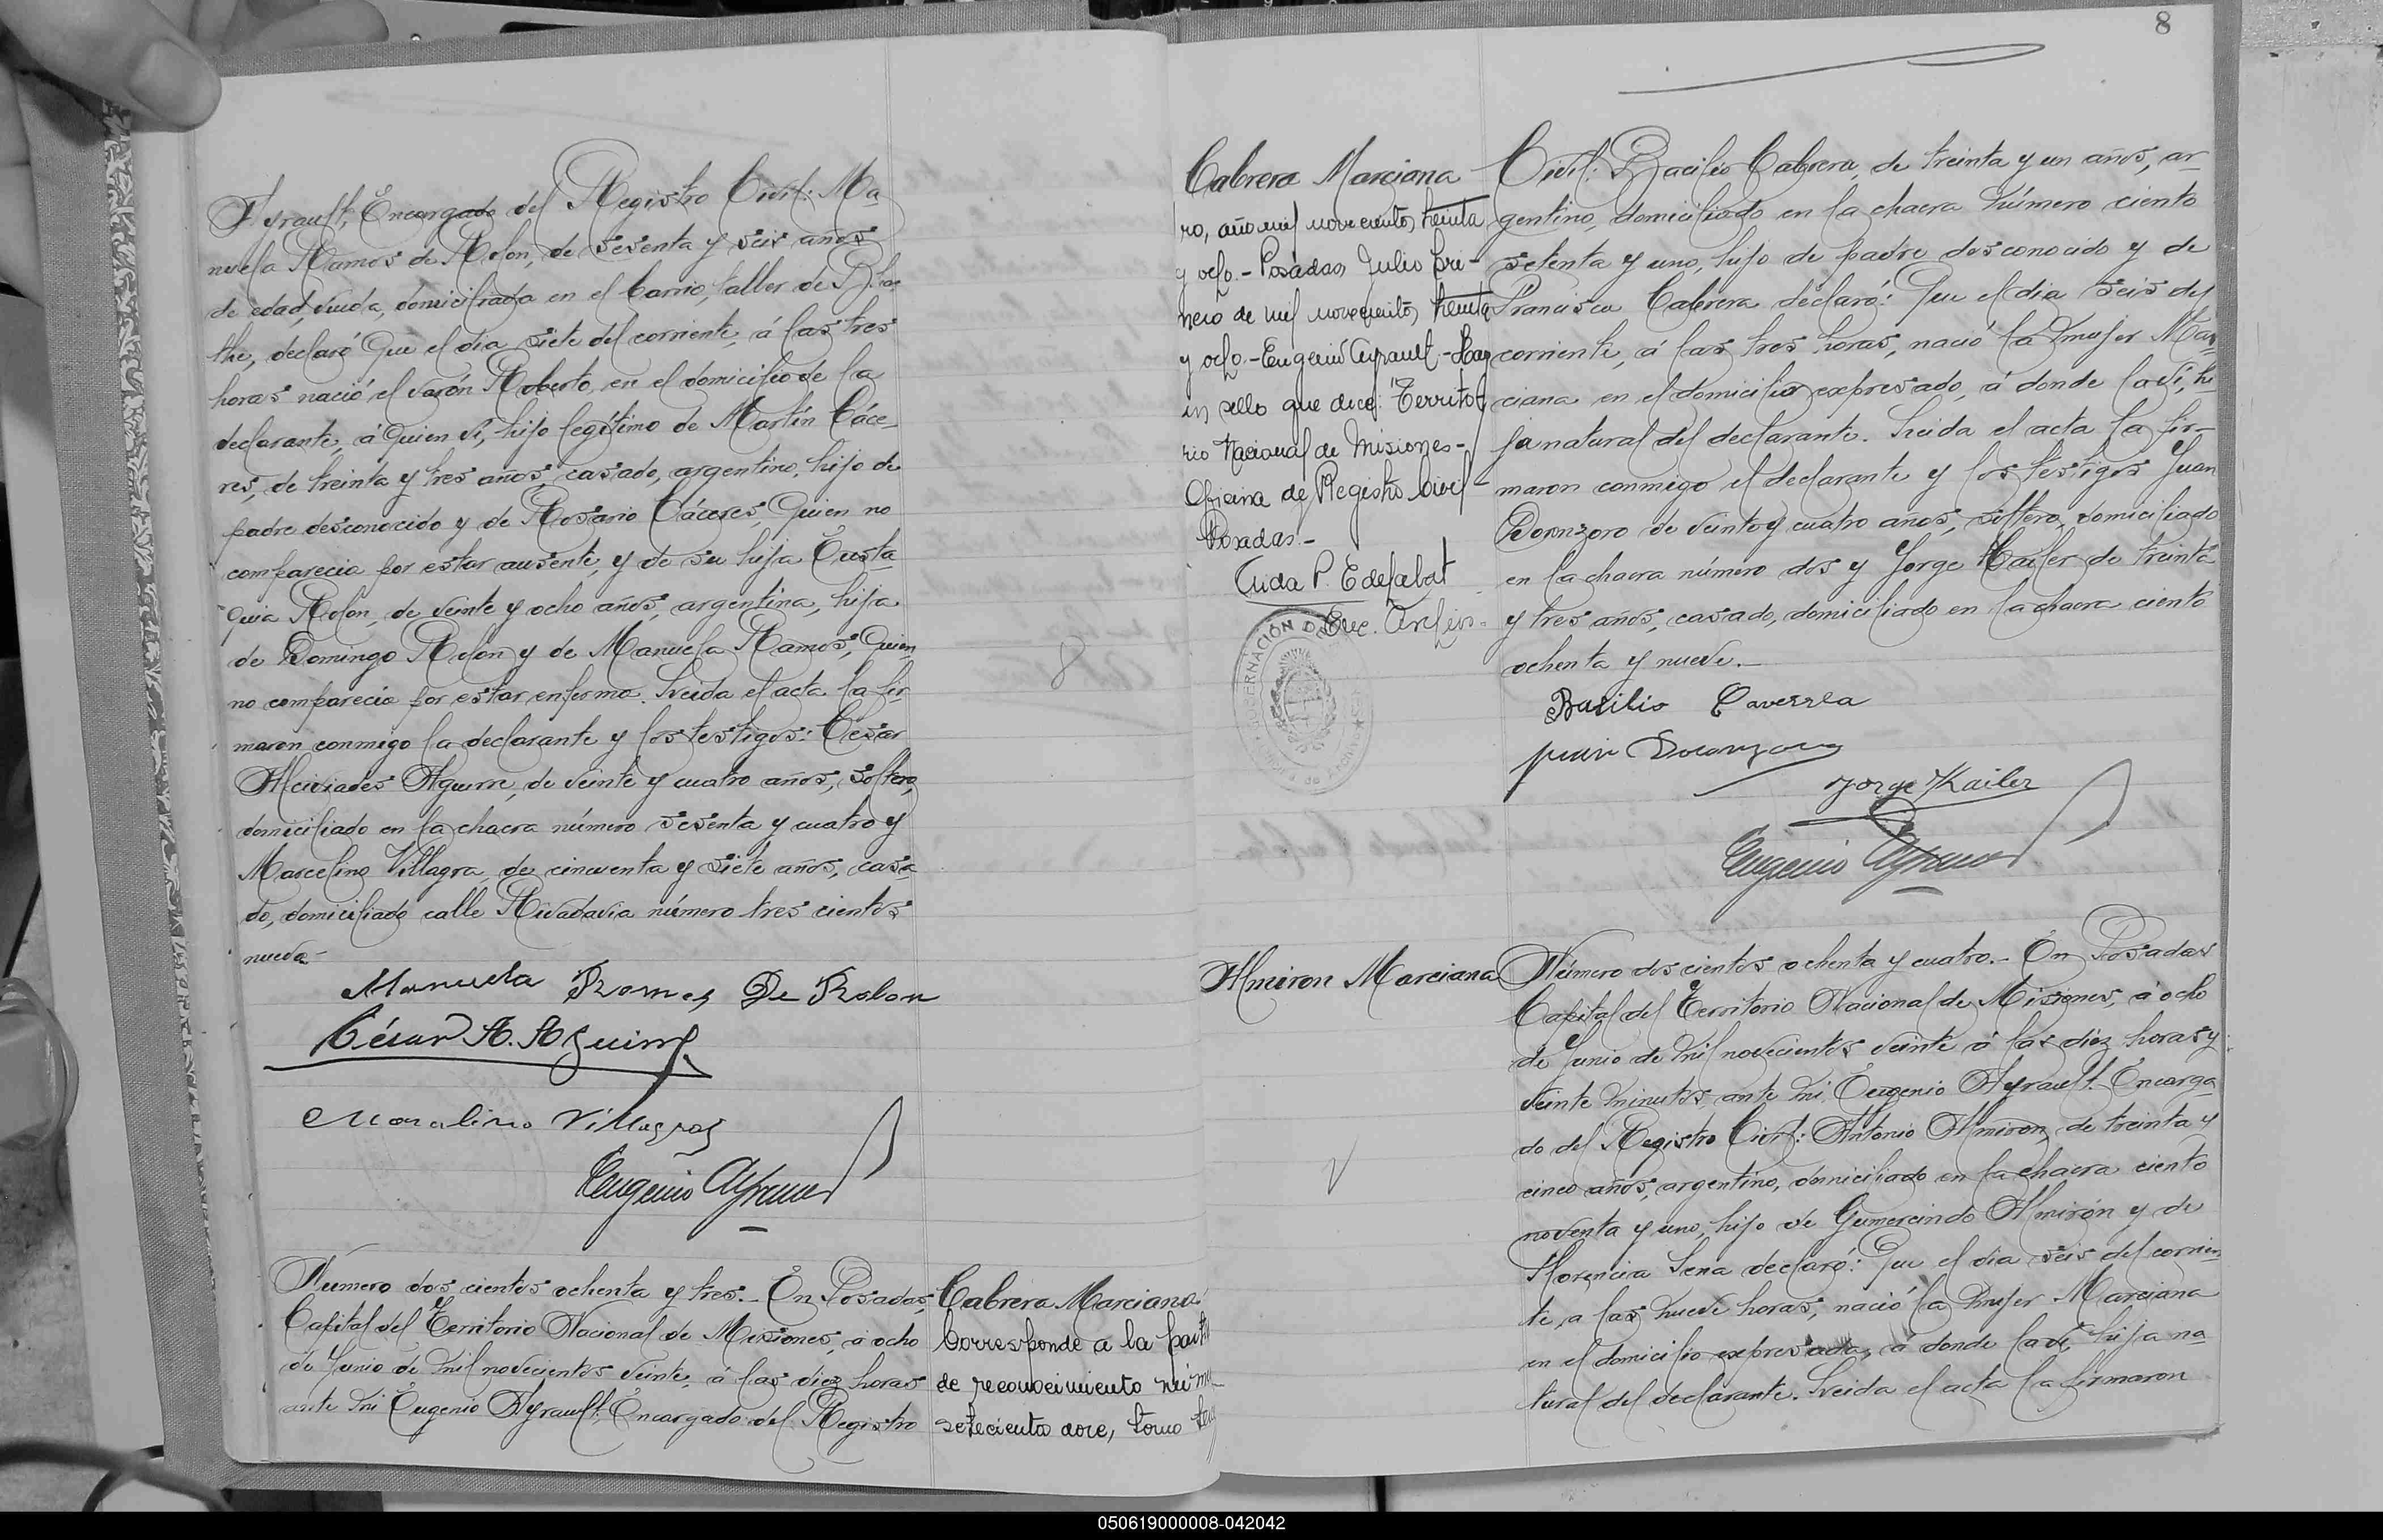 Ayrault, Encargado del Registro Civil: Ma
nuela Ramos de Rolon, de sesenta y seis años
de edad, viuda, domiciliada en el barrio, taller de Bla
the, declaró: Que el dia siete del corriente, á las tres
horas nació el varón Roberto, en el domicilio de la
declarante, á quien ví, hijo legítimo de Martín Cáce-
res, de treinta y tres años, casado, argentino, hijo de
padre desconocido y de Rosario Cáceres, quien no
comparecio por estar ausente, y de su hija Eusta
quia Rolon, de veinte y ocho años, argentina, hija
de Domingo Rolón y de Manuela Ramos, quien
no comparecio por estar enferma. Leida el acta la fir-
maron conmigo la declarante y los testigos: César
Alcibiades Aguirre, de veinte y cuatro años, soltero,
domiciliado en la chacra número sesenta y cuatro y
Marcelino Villagra, de cincuenta y siete años, casa
do, domiciliado calle Rivadavia número tres cientos
nueve-
Manuela Ramos De Rolon
César A. Aguirre
Marcelino Villagra
Eugenio Ayrault
8
Número dos cientos ochenta y tres.- En Posadas,
Capital del Territorio Nacional de Misiones, á ocho
de Junio de mil novecientos veinte, á las diez horas
ante mi Eugenio Ayrault, Encargado del Registro
Cabrera Marciana
Corresponde a la
de reconocimiento
setecientos doce, tomo
8
Cabrera Marciana
ro, año mil novecientos treinta
y ocho.- Posadas Julio pri-
mero de mil novecientos treinta
y ocho.- Eugenio Ayrault - Hay
un sello que dice: Territo
rio Nacional de Misiones-
Oficina de Registro Civil-
Posadas.-
Enc.
GOBERNACIÓN DE
Civil: Bacilio Cabrera, de treinta y un años, ar-
gentino, domiciliado en la chacra número ciento
setenta y uno, hijo de padre desconocido y de
Francisca Cabrera declaró: Que el dia seis del
corriente, á las tres horas, nació la mujer Mar-
ciana en el domicilio expresado, á donde la ví, hi
ja natural del declarante. Leida el acta la fir-
maron conmigo el declarante y los testigos Juan
Doronzoro de veinte y cuatro años, soltero, domiciliado
en la chacra número dos y Jorge Kailer de treinta
y tres años, casado, domiciliado en la chacra ciento
ochenta y nueve.-
Basilio Caverrea
Juan Doronzoro
Jorge Kailer
Eugenio Ayrault
Almiron Marciana
Número dos cientos ochenta y cuatro.- En Posadas
Capital del Territorio Nacional de Misiones, á ocho
de Junio de mil novecientos veinte á las diez horas y
veinte minutos, ante mi Eugenio Ayrault Encarga
do del Registro Civil: Antonio Almiron, de treinta y
cinco años, argentino, domiciliado en la chacra ciento
noventa y uno, hijo de Gumercindo Almirón y de
Florencia Sena declaró: Que el dia seis del corrien
te, a las nueve horas, nació la mujer Marciana
en el domicilio expresado, á donde la ví, hija na
tural del declarante. Leida el acta la firmaron
050619000008-042042